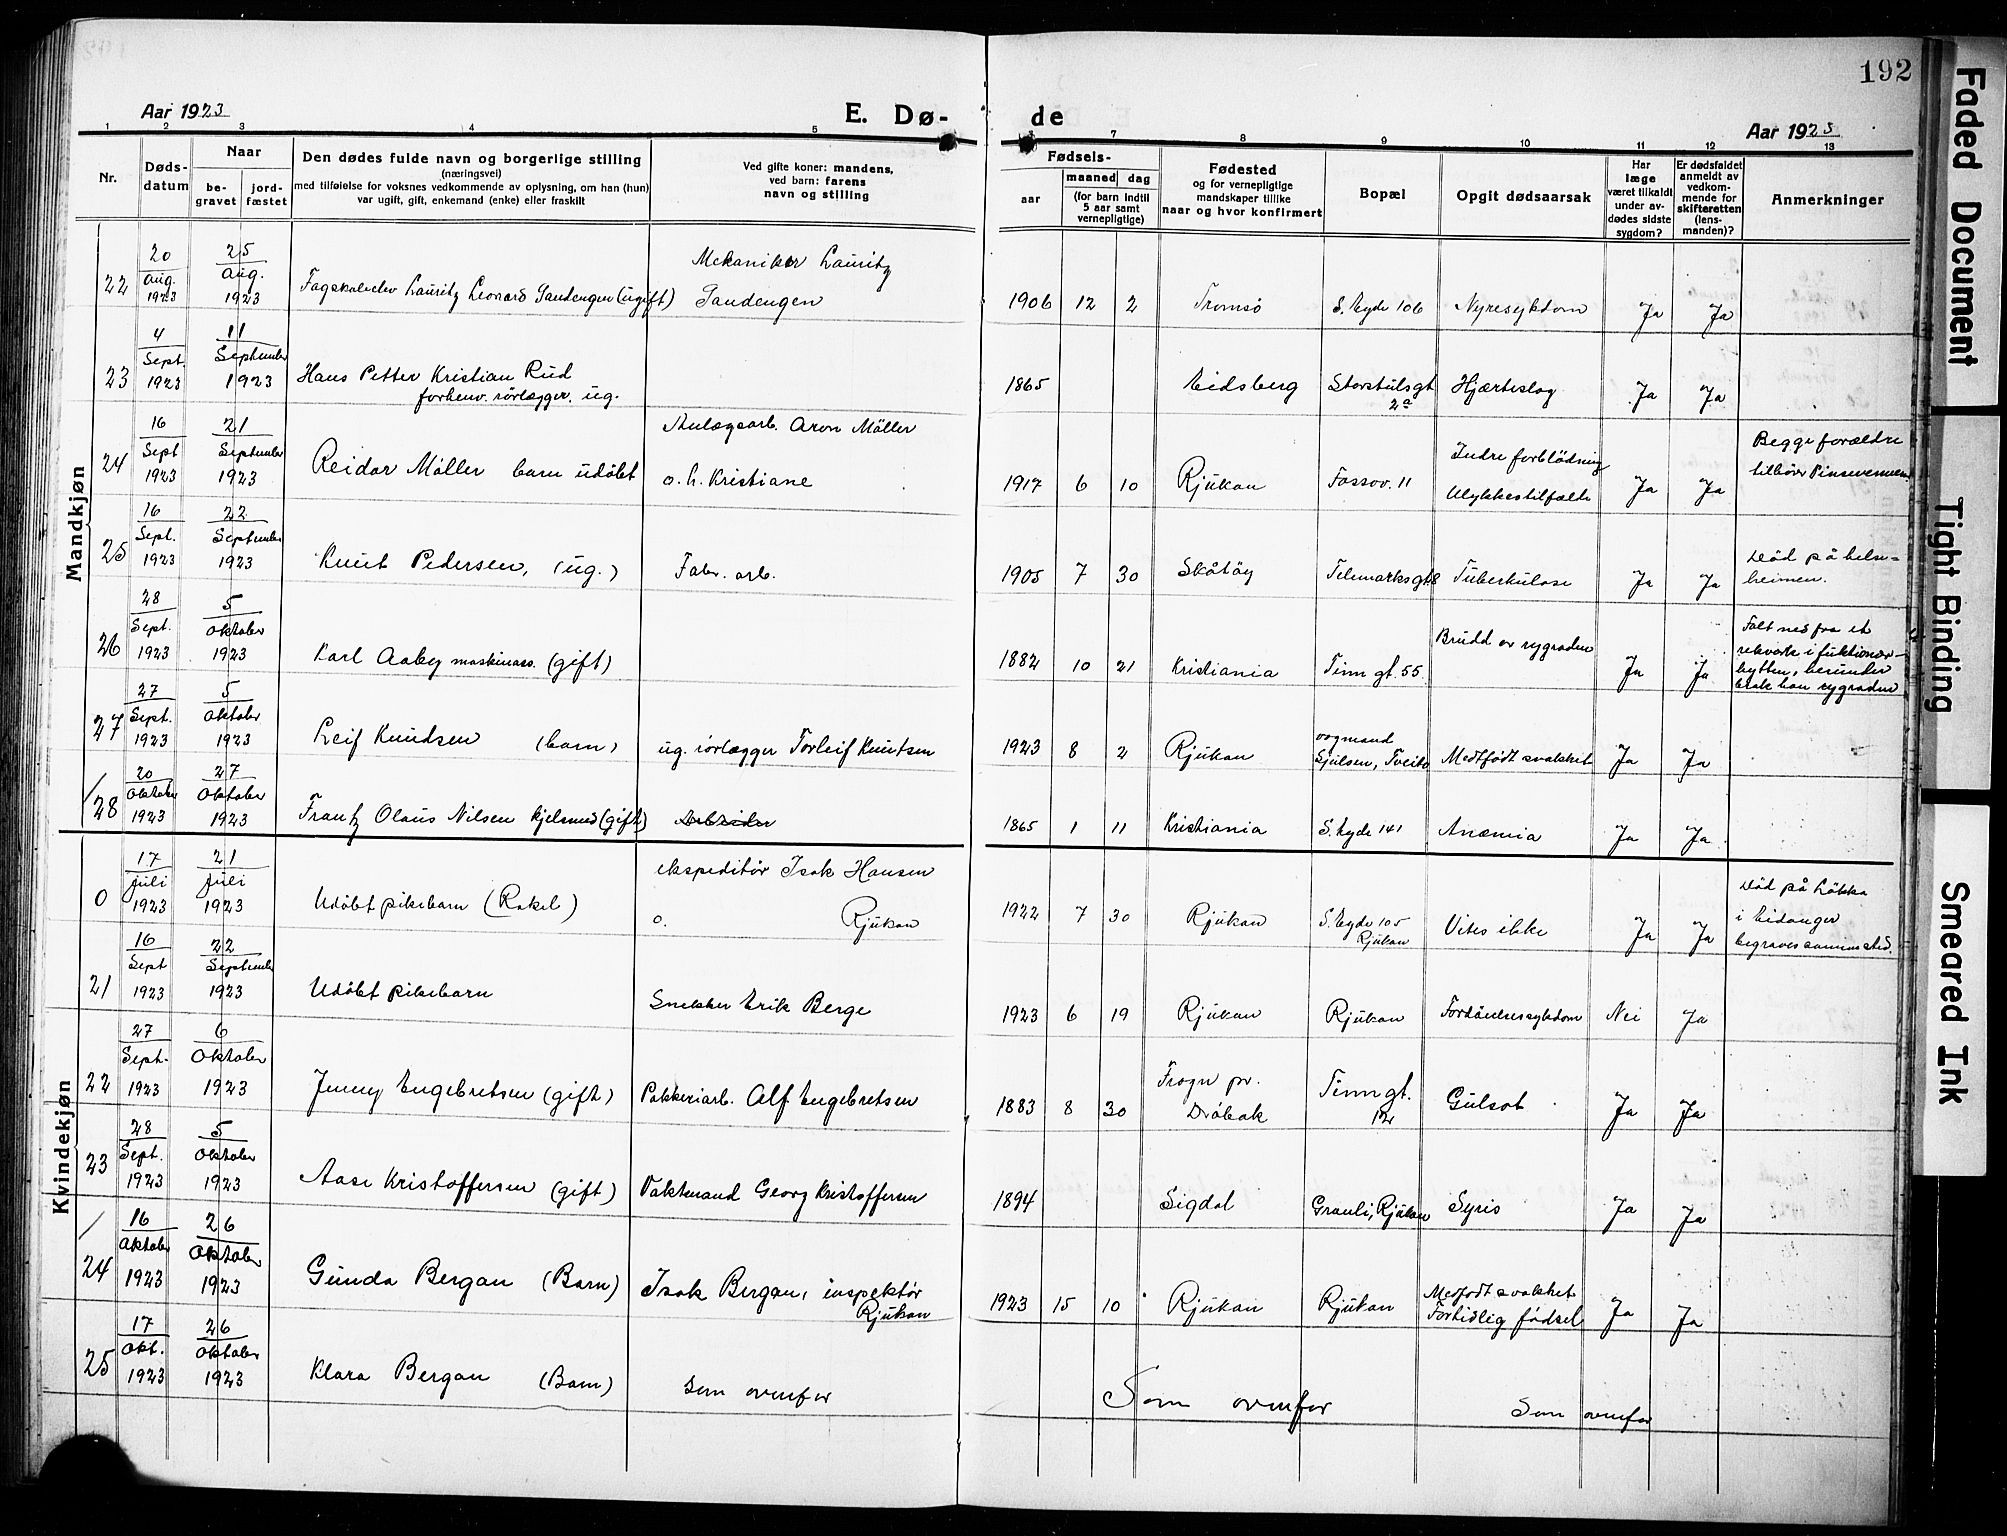 192
Aar 1923
E. Dø-
de
Aar 1923
1 2 3 4 5 7 8 9 10 11 12 13
Nr.
Døds-
datum
Naar
be-
gravet
jord-
fæstet
Den dødes fulde navn og borgerlige stilling
(næringsvei)
med tilføielse for voksnes vedkommende av oplysning, om han (hun)
var ugift, gift, enkemand (enke) eller fraskilt
Ved gifte koner: mandens,
ved barn: farens
navn og stilling
Fødsels-
aar
maaned
dag
(for barn indtil
5 aar samt
vernepligtige)
Fødested
og for vernepligtige
mandskaper tillike
naar og hvor konfirmert
Bopæl
Opgit dødsaarsak
Har
læge
været tilkaldt
under av-
dødes sidste
sygdom?
Er dødsfaldet
anmeldt av
vedkom-
mende for
skifteretten
(lens-
manden)?
Anmerkninger
Mandkjøn
22
20
Aug.
1923
25
Aug.
1923
Lauritz Leonard Sandengen (ugift)
Mekaniker Lauritz
Sandengen
1906 12 2
Tromsø
S. Eyde 106
Nyresykdom
Ja
Ja
23
4
Sept.
1923
11
September
1923
Hans Petter Kristian Rud
forhenv. rørlægger. ug.
1865
Eidsberg
Storstulsgt
2a
Hjærteslag
Ja
Ja
24
16
Sept
1923
21
September
1923
Reidar Møller barn udøbt
Anlægsarb. Aron Møller
o. h. Kristiane
1917 6 10
Rjukan
Fossov. 11
Indre forblødning
Ulykkestilfælde
Ja
Ja
Begge forældre
tilhører
25
16
Sept.
1923
22
September
1923
Knut Pedersen, (ug.)
Fabr. arb.
1905 7 30
Skåtøy
Telemarksgt 8
Tuberkulose
Ja
Ja
Død på helse-
heimen.
26
28
Sept.
1923
5
Oktober
1923
Karl Aaby maskinass. (gift)
1882 10 21
Kristiania
Tinn gt. 55
Brudd av rygraden
Ja
Ja
Falt ned fra et
rekverk i funktionær-
hytten, herunder
brak han rygraden
27
27
Sept.
1923
5
Oktober
1923
Leif Knudsen (barn)
ug. rørlægger Torleif Knutsen
1923 8 2
Rjukan
vogmand
Gjulsen, Tveito
Medfødt svakhet
Ja
Ja
28
20
Oktober
1923
27
Oktober
1923
Frantz Olaus Nilsen kjelsmed (gift)
Arbeider
1865 1 11
Kristiania
S. Eyde 141
Anæmia
Ja
Ja
Kvindekjøn
0
17
juli
1923
21
juli
1923
Udøbt pikebarn (Rakel)
ekspeditør Isak Hansen
o. Rjukan
1922 7 30
Rjukan
S. Eyde 105
Rjukan
Vites ikke
Ja
Ja
Død på Løkka
i Eidanger
begraves sammested.
21
16
Sept
1923
22
September
1923
Udøbt pikebarn
Snekker Erik Berge
1923 6 19
Rjukan
Rjukan
Fordøielsessykdom
Nei
Ja
22
27
Sept.
1923
6
Oktober
1923
Jenny Engebretsen (gift)
Pakkeriarb. Alf Engebretsen
1883 8 30
Frogn pr.
Drøbak
Tinn gt.
12
Gulsot
Ja
Ja
23
28
Sept.
1923
5
Oktober
1923
Aase Kristoffersen (gift)
Vaktmand Georg Kristoffersen
1894
Sigdal
Grauli, Rjukan
Ja
Ja
24
16
Oktober
1923
26
Oktober
1923
Gunda Bergan (Barn)
Isak Bergan, inspektør
Rjukan
1923 15 10
Rjukan
Rjukan
Medfødt svakhet
Fortidlig fødsel
Ja
Ja
25
17
Okt.
1923
26
Oktober
1923
Klara Bergan (Barn)
Som ovenfor
Som ovenfor
Som ovenfor
Faded Document
Tight Binding
Smeared Ink